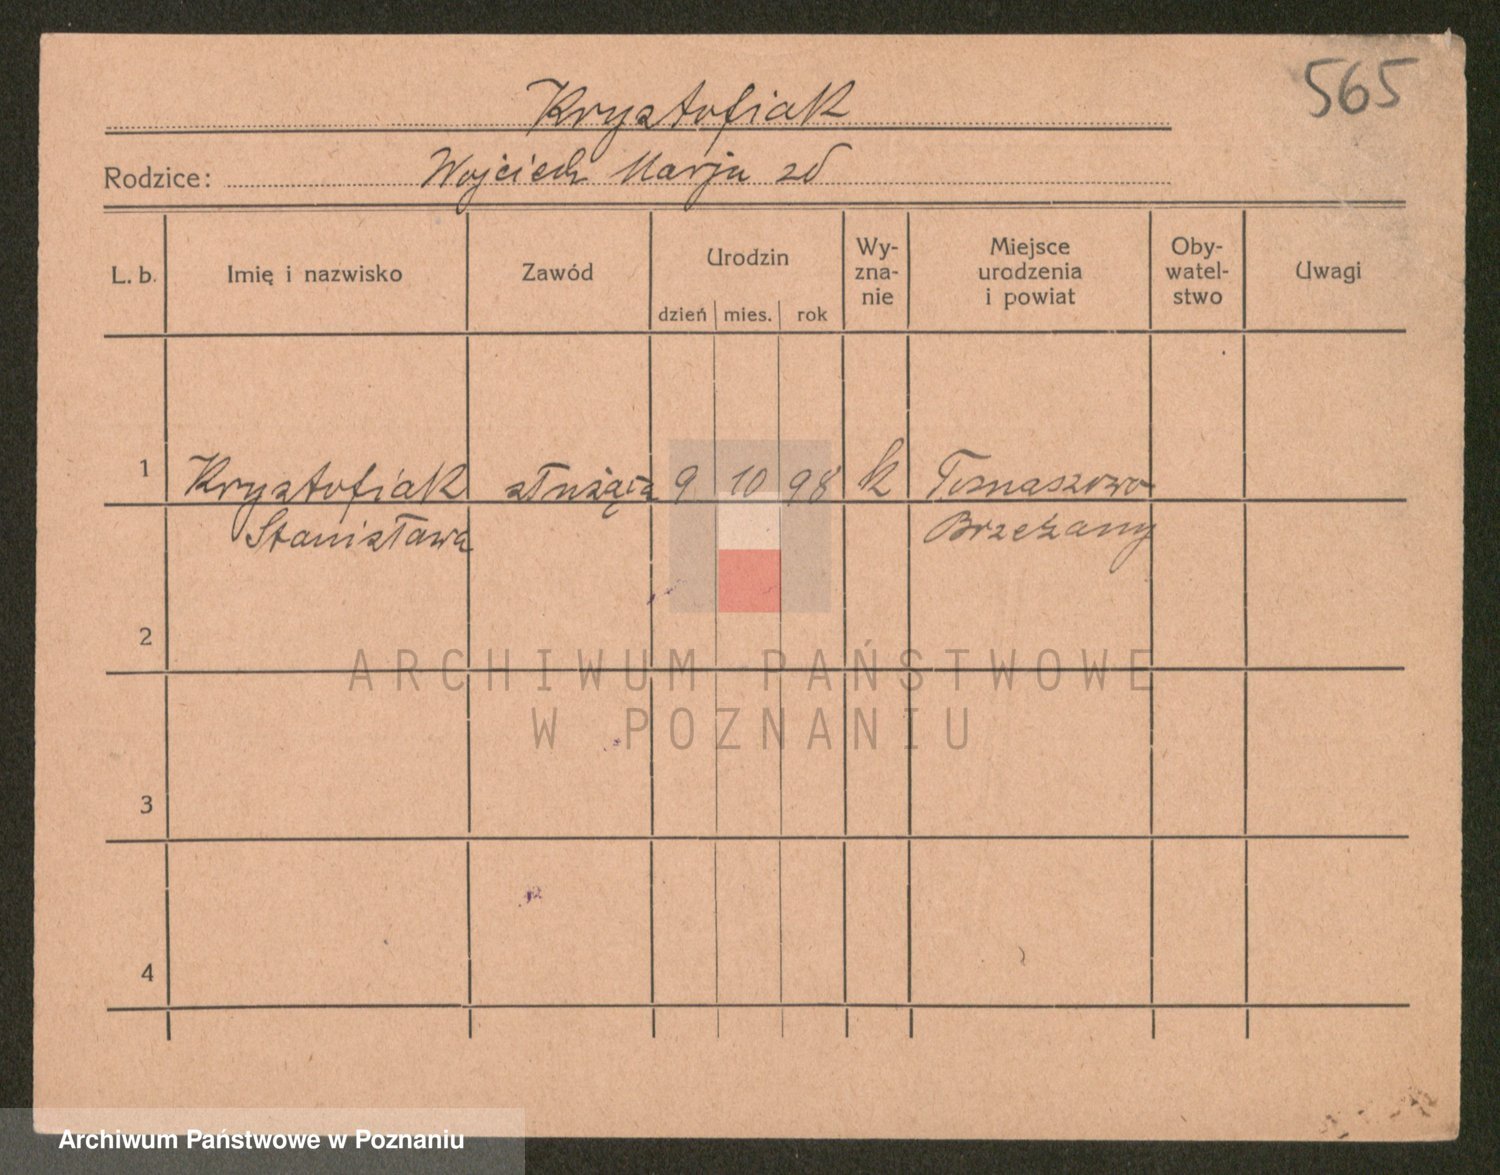 565
Krysztofiak
Rodzice: Wojciech Marja zd
L. b. Imię i nazwisko Zawód Urodzin dzień mies. rok Wy-zna-nie Miejsce urodzenia i powiat Oby-watel-stwo Uwagi
1 Krysztofiak służąca 9 10 98 k Tomaszowo
Stanisława Brzeżany
2
ARCHIWUM PAŃSTWOWE
W POZNANIU
3
4
Archiwum Państwowe w Poznaniu